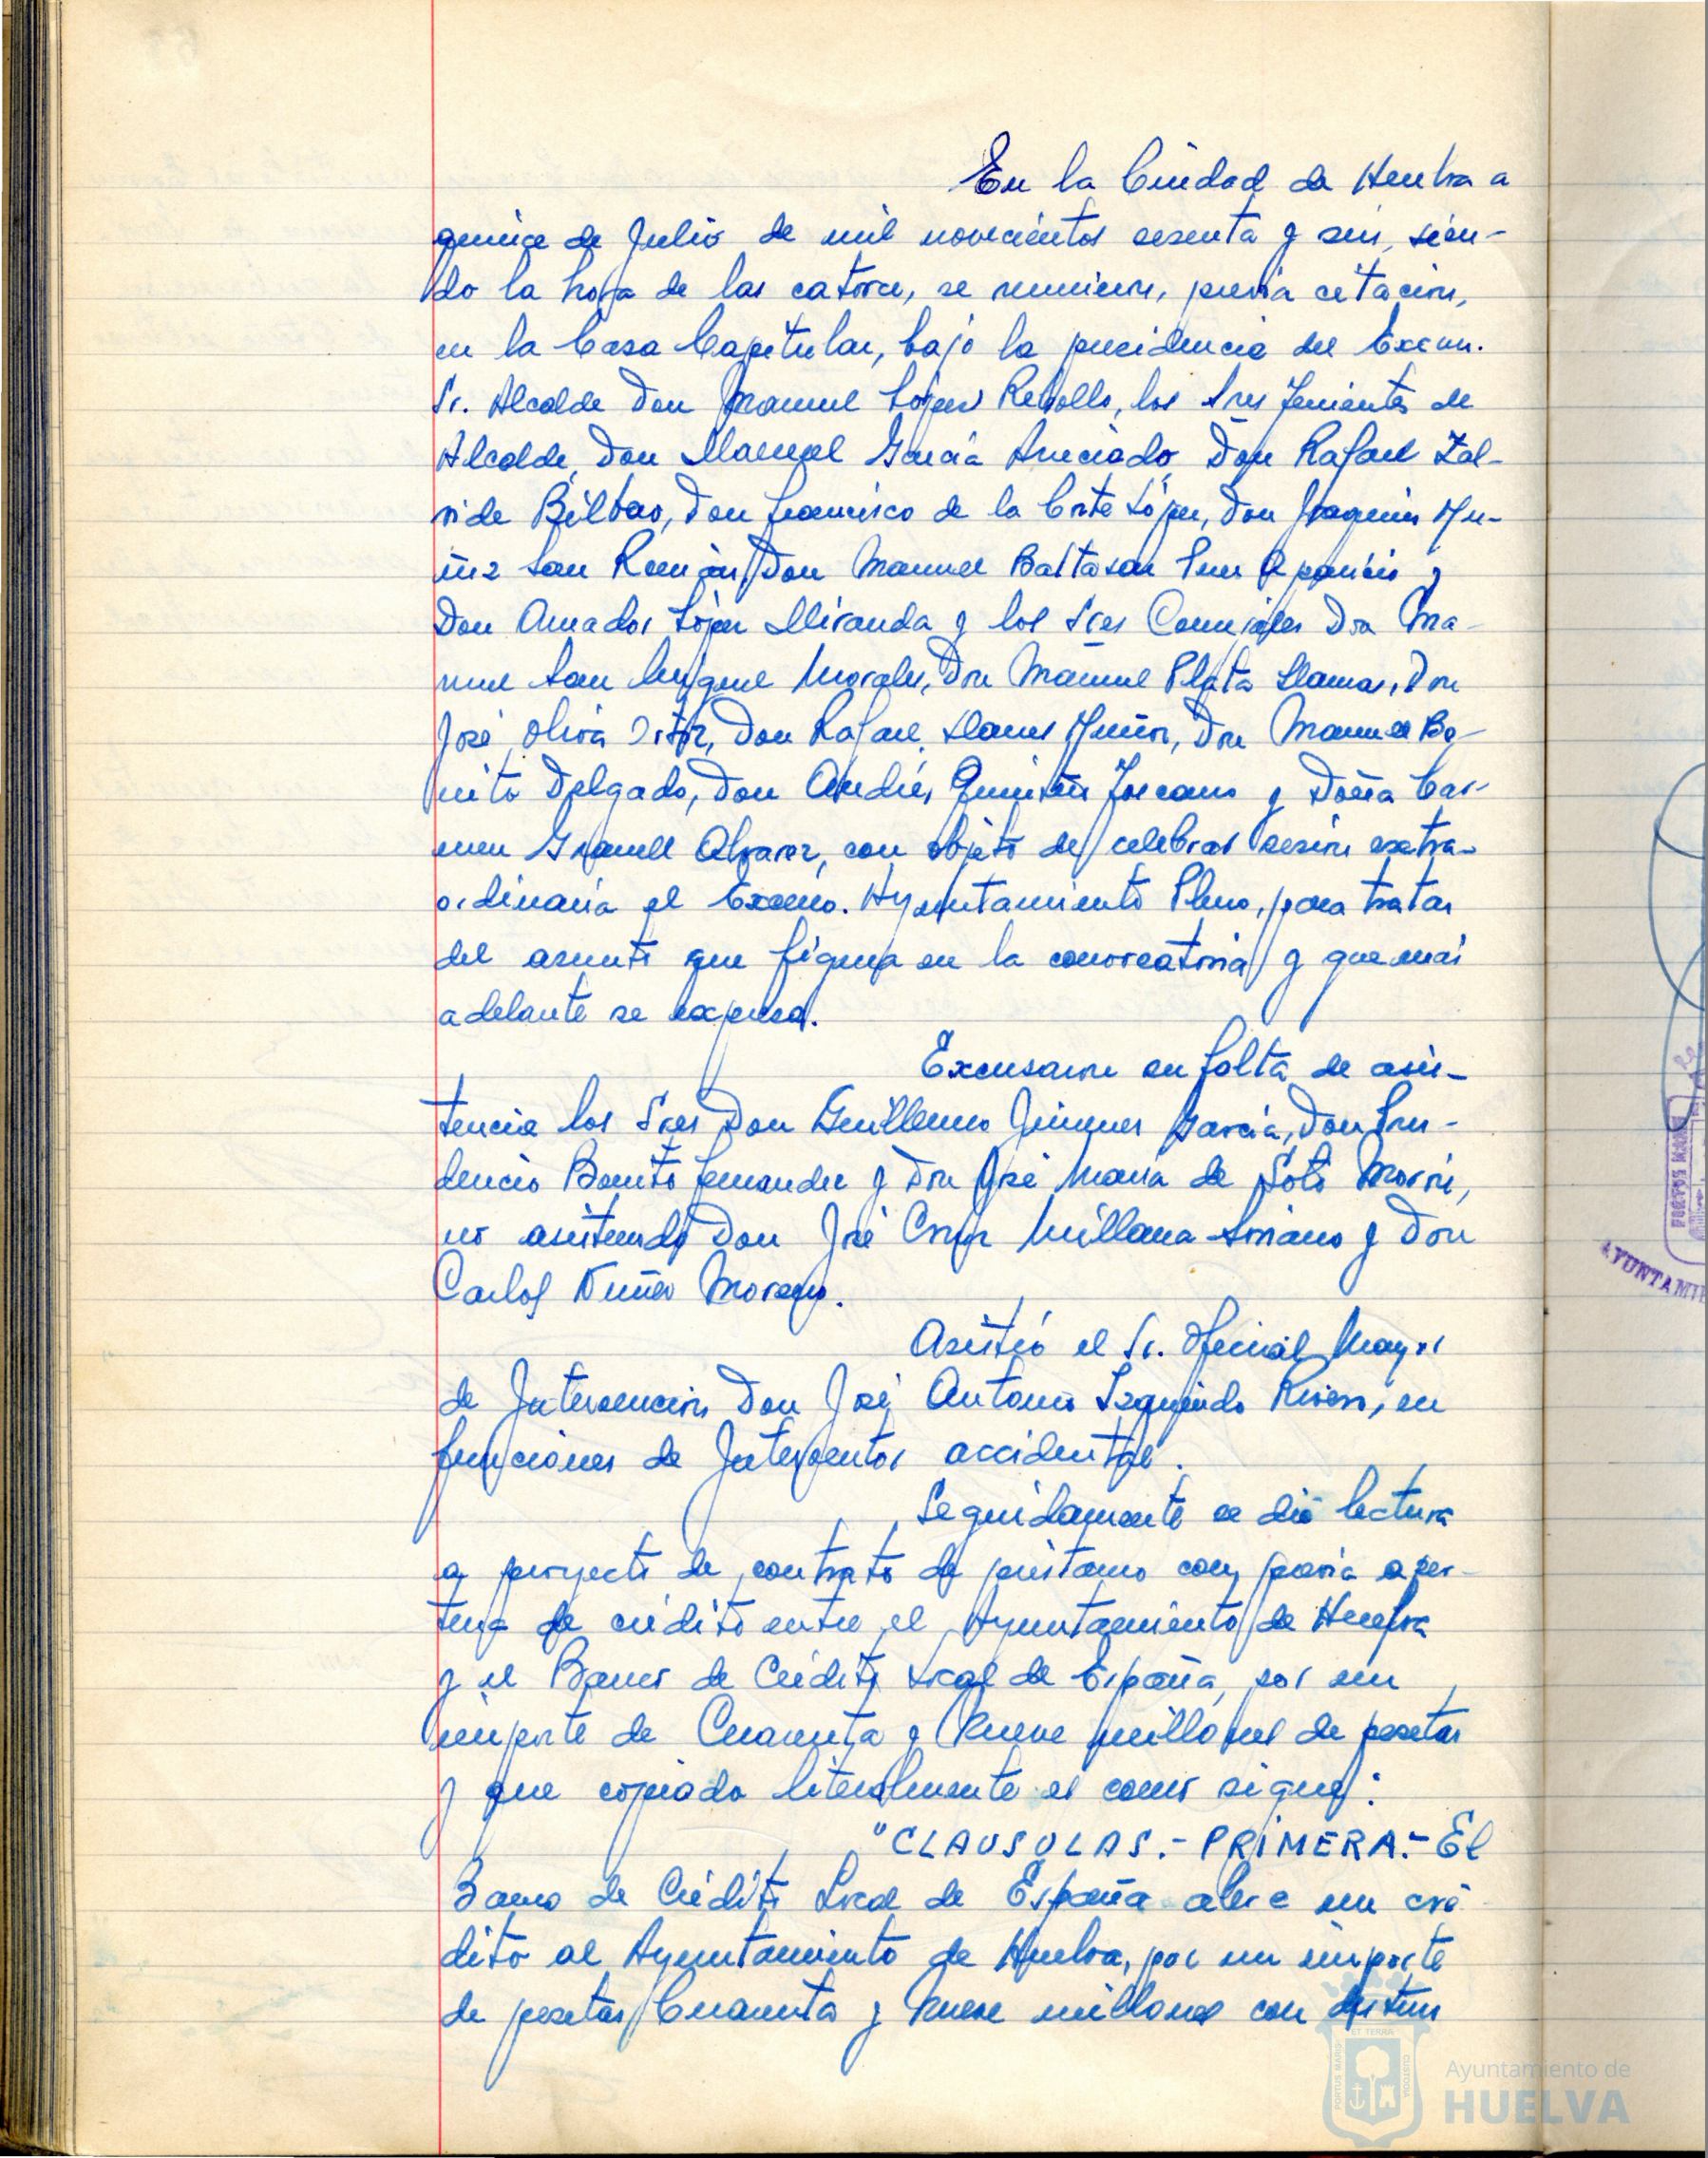 En la Ciudad de Huelva a
quince de Julio de mil novecientos sesenta y seis, sien-
do la hora de las catorce, se reunieron, previa citación,
en la Casa Capitular, bajo la presidencia del Excmo.
Sr. Alcalde Don Manuel López Rebollo, los Sres Tenientes de
Alcalde, Don Manuel García Anrciado, Don Rafael Zal-
vide Bilbao, Don Francisco de la Corte López, Don Joaquín Mu-
ñiz San Román, Don Manuel Baltasar Aparicio y
Don Amador López Miranda y los Sres Concejales Don Ma-
nuel San Miguel Morales, Don Manuel Plata Llamas, Don
José Oliva, Don Rafael Llanes Muñoz, Don Manuel Bo-
nito Delgado, Don Andrés Quintín Toscano y Doña Car-
men Granell Alvarez, con objeto de celebrar sesión extra-
ordinaria el Excmo. Ayuntamiento Pleno, para tratar
del asunto que figura en la convocatoria y que mas
adelante se expresa.
Excusaron su falta de asis-
tencia los Sres Don Guillermo Jimenez García, Don Pru-
dencio Bonito Fernandez y Don José María de Soto Morón,
no asistiendo Don José Cruz Millana Soriano y Don
Carlos Nuñez Moreno.
Asistió el Sr. Oficial Mayor
de Intervencion Don José Antonio Izquierdo Rivero, en
funciones de Interventor accidental.
Seguidamente se dió lectura
a proyecto de contrato de préstamo con previa aper-
tura de crédito entre el Ayuntamiento de Huelva
y el Banco de Crédito Local de España, por un
importe de Cuarenta y Nueve millones de pesetas
y que copiado literalmente es como sigue:
"CLAUSULAS.- PRIMERA.- El
Banco de Crédito Local de España abre un cré-
dito al Ayuntamiento de Huelva, por un importe
de pesetas Cuarenta y Nueve millones con destino
PORTUS MARIS
AYUNTAMIE
PORTUS MARIS
ET TERRA
CUSTODIA
Ayuntamiento de
HUELVA